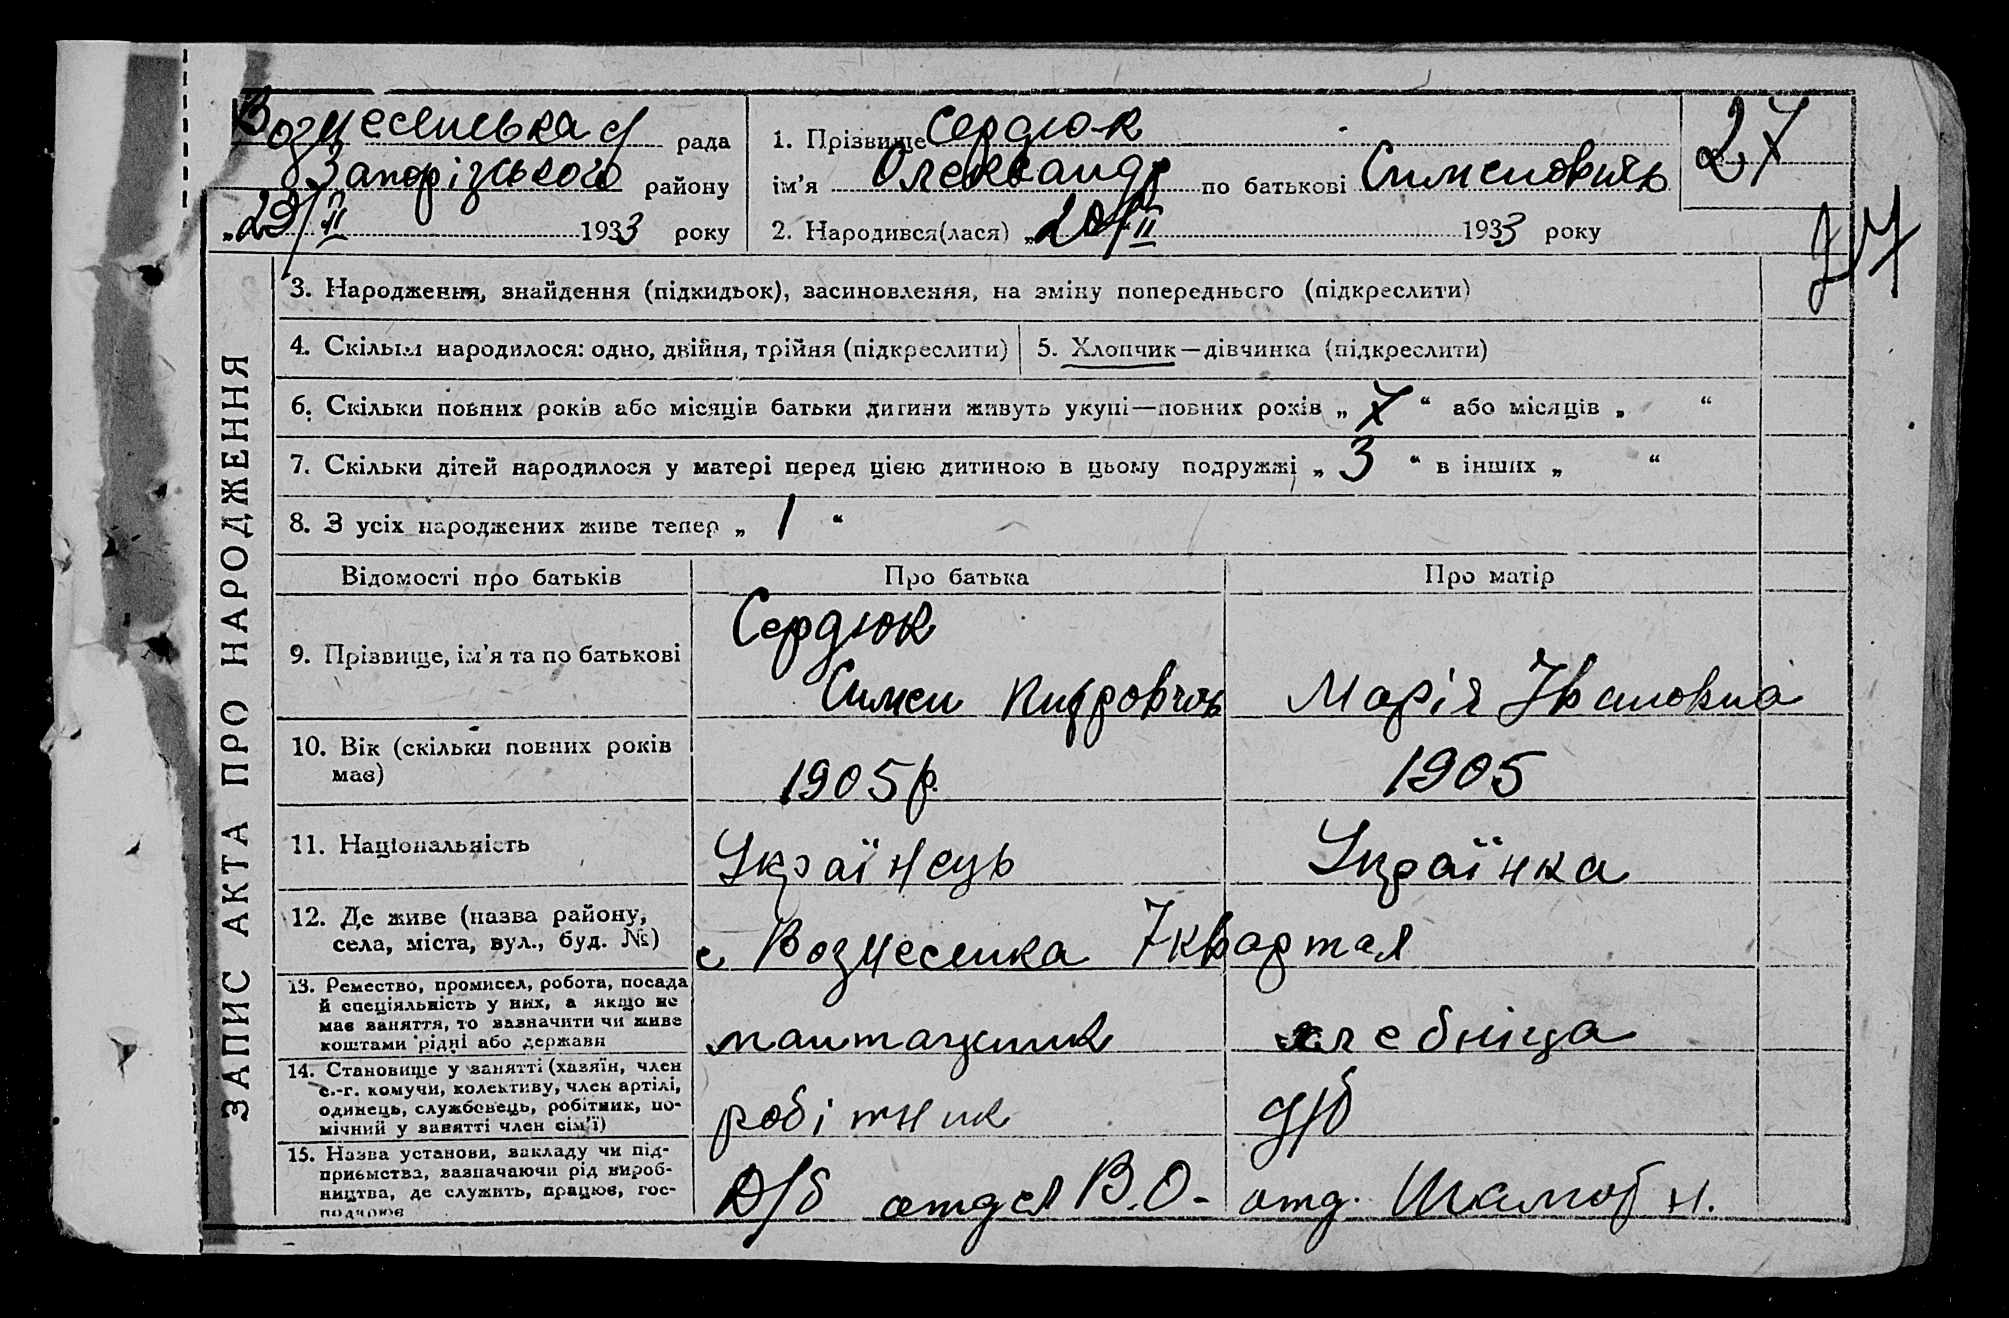 Вознесенська с/ рада
Запорізського району
„29/II 1933 року
1. Прізвище Сердюк
ім’я Олександр по батькові Сименовичь
2. Народився(лася) „ /II 1933 року
27
27
ЗАПИС АКТА ПРО НАРОДЖЕННЯ
3. Народження, знайдення (підкидьок), засиновлення, на зміну попереднього (підкреслити)
4. Скільки народилося: одно, двійня, трійня (підкреслити)
5. Хлопчик—дівчинка (підкреслити)
6. Скільки повних років або місяців батьки дитини живуть укупі—повних років „ 7 “ або місяців „ “
7. Скільки дітей народилося у матері перед цією дитиною в цьому подружжі „ 3 “ в інших „ “
8. З усіх народжених живе тепер „ 1 “
Відомості про батьків Про батька Про матір
9. Прізвище, ім’я та по батькові
Сердюк
Симен Марія Івановна
10. Вік (скільки повних років
має)
1905 р. 1905
11. Національність Українець Українка
12. Де живе (назва району,
села, міста, вул., буд. №)
с Вознесенка 7 квартал
13. Ремество, промисел, робота, посада
й спеціяльність у них, а якщо не
має заняття, то зазначити чи живе
коштами рідні або держави
хлебніца
14. Становище у занятті (хазяїн, член
с.-г. комуни, колективу, член артілі,
одинець, службовець, робітник, по-
мічний у занятті член сім’ї)
робітник д/б
15. Назва установи, закладу чи під-
приємства, зазначаючи рід вироб-
ництва, де служить, працює, гос-
подарює
Д/б отдел В.О- отд.